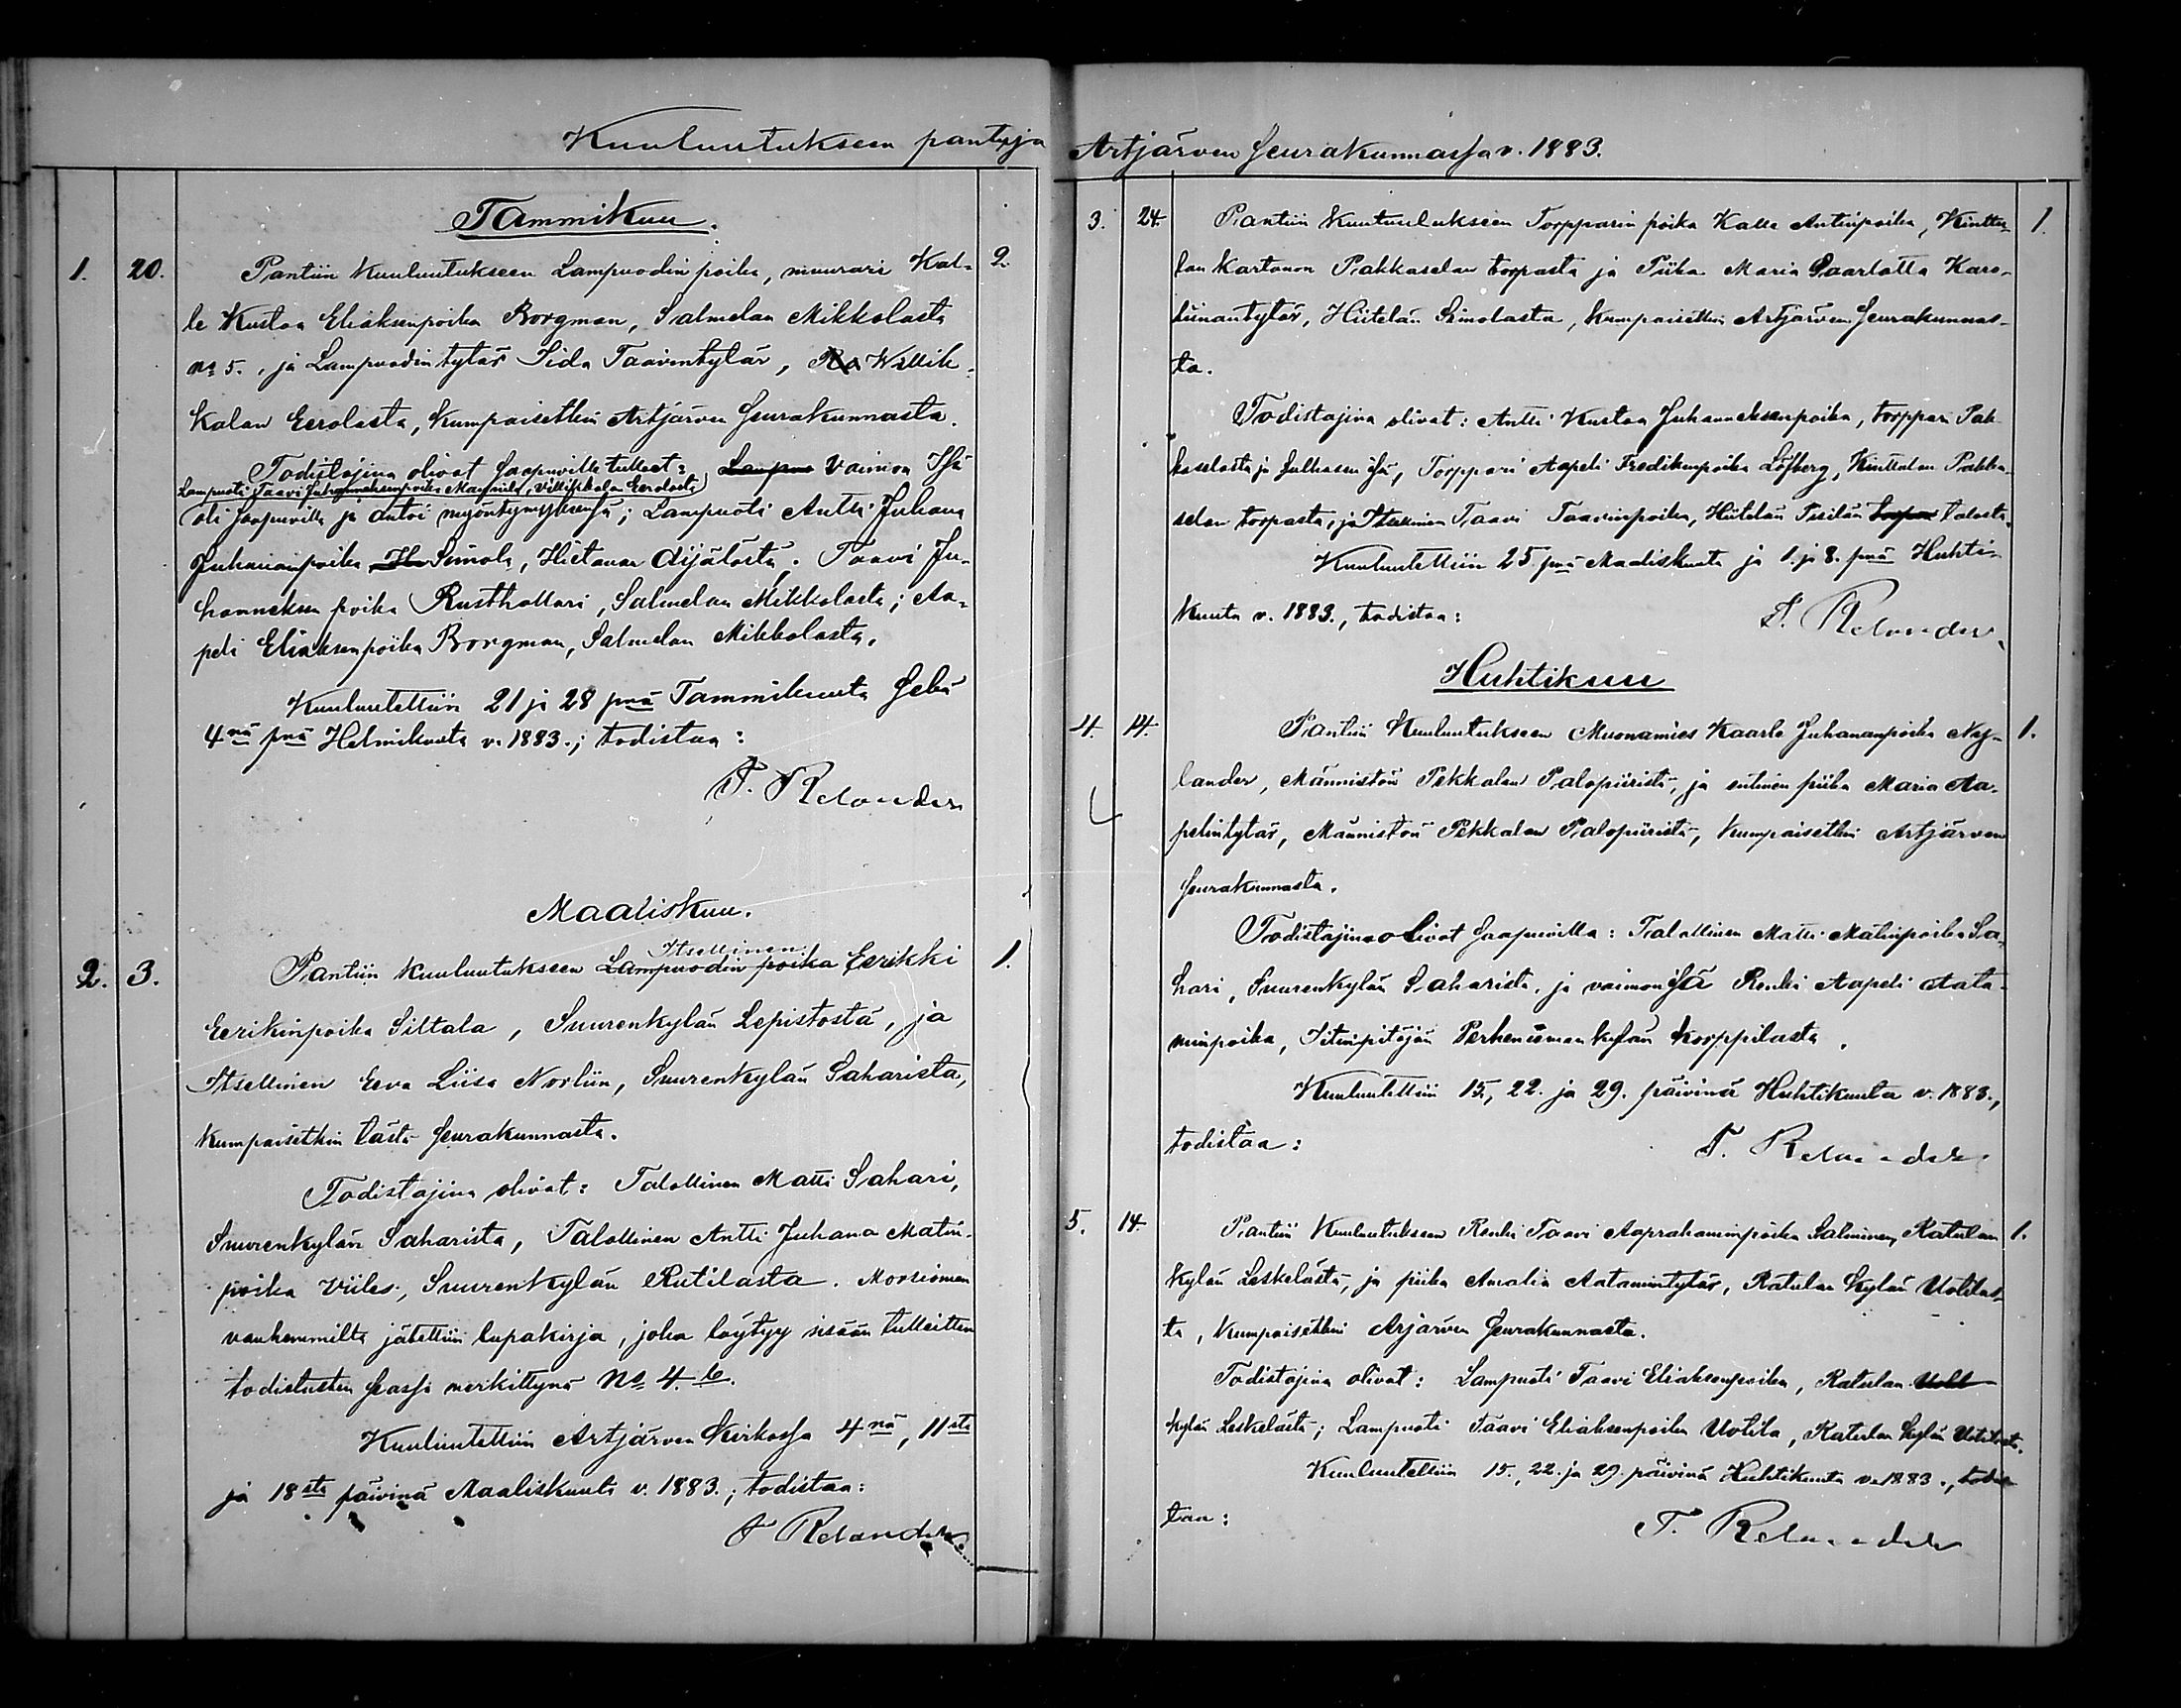 Kuuluutukseen pantuja
Tammikuu.
1. 20. Pantiin Kuuluutukseen Lampuodin poika, muurari Kal- 2.
le Kustaa Eliaksenpoika Borgman, Salmelan Mikkolasta
No 5., ja Lampuodin tytär Iida Taavintytär, Ra Willik-
kalan Eerolasta, Kumpaisetkin Artjärven Seurakunnasta.
Todistajina olivat saapuvilla tulleet: Lampuo Vaimon Isä
Lampuoti Taavi Juhanneksenpoika Mannila, Villikkalan Eerolasta
oli saapuvilla ja antoi myöntymyksensä; Lampuoti Antti Juhana
Juhananpoika Simola, Hietanan Äijälästä; Taavi Ju-
hanneksen poika Rusthollari, Salmelan Mikkolasta; Aa-
peli Eliaksenpoika Borgman, Salmelan Mikkolasta.
Kuuluutettiin 21 ja 28 pnä Tammikuuta Sekä
4nä pnä Helmikuuta v. 1883.; todistaa:
T. Relander
Maaliskuu.
Itsellinen
2. 3. Pantiin Kuuluutukseen Lampuodin poika Eerikki 1.
Eerikinpoika Siltala, Suurenkylän Lepistöstä, ja
Itsellinen Eeva Liisa Norliin, Suurenkylän Saharista,
Kumpaisetkin tästä Seurakunnasta.
Todistajina olivat: Talollinen Matti Sahari,
Suurenkylän Saharista, Talollinen Antti Juhana Matin-
poika Viiles, Suurenkylän Rutilasta. Morsiamen
vanhemmilta jätettiin lupakirja, joka löytyy sisään tulleitten
todistusten seassa merkittynä No 4. b.
Kuuluutettiin Artjärven Kirkossa 4nä, 11sta
ja 18sta päivinä Maaliskuuta v. 1883.; todistaa:
T Relander
Artjärven Seurakunnassa v. 1883.
3. 24. Pantiin Kuutuulukseen Torpparin poika Kalle Antinpoika, Kinttu- 1.
lan Kartanon Pakkaselan torpasta ja Piika Maria Saarlotta Karo-
liinantytär, Hiitelän Simolasta, Kumpaisetkin Artjärven Seurakunnas-
ta.
Todistajina olivat: Antti Kustaa Juhanneksenpoika, torppari Pak-
kaselasta ja Sulhasen isä, Torppari Aapeli Fredikinpoika Löfberg, Kinttulan Pakka-
selan torpasta, ja Itsellinen Taavi Taavinpoika, Hiitelän torpan talosta.
Kuuluutettiin 25 pnä Maaliskuuta ja 1. ja 8. pnä Huhti-
Kuuta v. 1883., todistaa:
T. Relander.
Huhtikuu
4. 14. Pantiin Kuuluutukseen Muonamies Kaarle Juhananpoika Ny- 1.
lander, Männistön Pekkalan Palopiiristä, ja entinen piika Maria Aa-
pelintytär, Männistön Pekkalan Palopiiristä, Kumpaisetkin Artjärven
Seurakunnasta.
Todistajina olivat Saapuvilla: Talollinen Matti Matinpoika Sa-
hari, Suurenkylän Saharista, ja vaimon isä Renki Aapeli Aata-
minpoika, Iitinpitäjän Perheniemen kylän Korppilasta.
Kuuluutettiin 15, 22. ja 29. päivinä Huhtikuuta v. 1883.,
todistaa:
T. Relander.
5. 14. Pantiin Kuuluutukseen Renki Taavi Aaprahaminpoika Salminen, Ratulan 1.
Kylän Leskelästä, ja piika Amalia Aatamintytär, Ratulan Kylän Uotilas-
ta, Kumpaisetkin Arjärven Seurakunnasta.
Todistajina olivat: Lampuoti Taavi Eliaksenpoika, Ratulan
kylän Leskelästä; Lampuoti Taavi Eliaksenpoika Uotila, Ratulan Kylän Uotilasta.
Kuuluutettiin 15., 22. ja 29. päivinä Huhtikuuta v. 1883., todis-
taa:
T. Relander